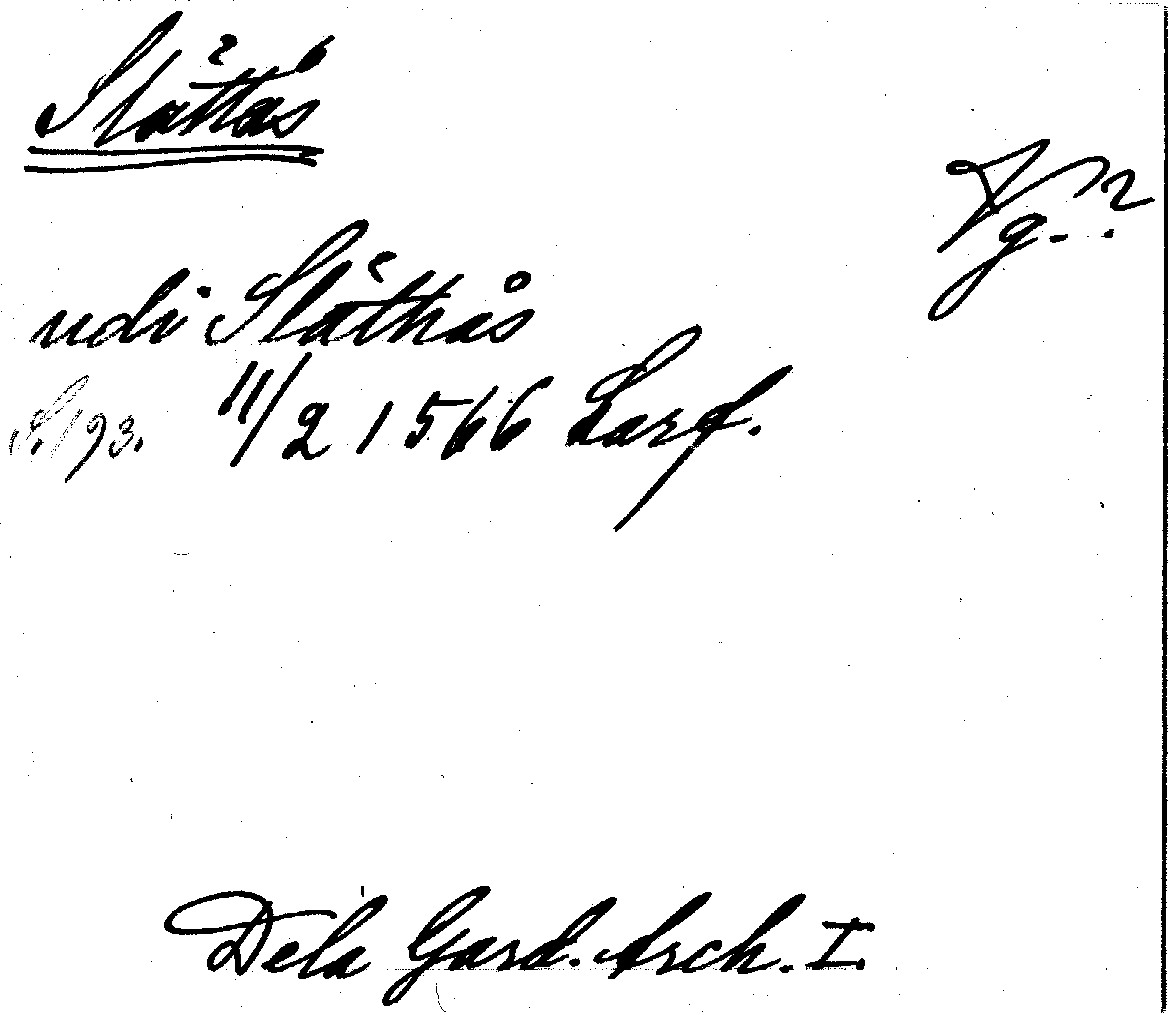 Slåttås
Vg.?
udi Slåthås
S. 193. 11/2 1566 Larf.
Dela Gard. Arch. I.